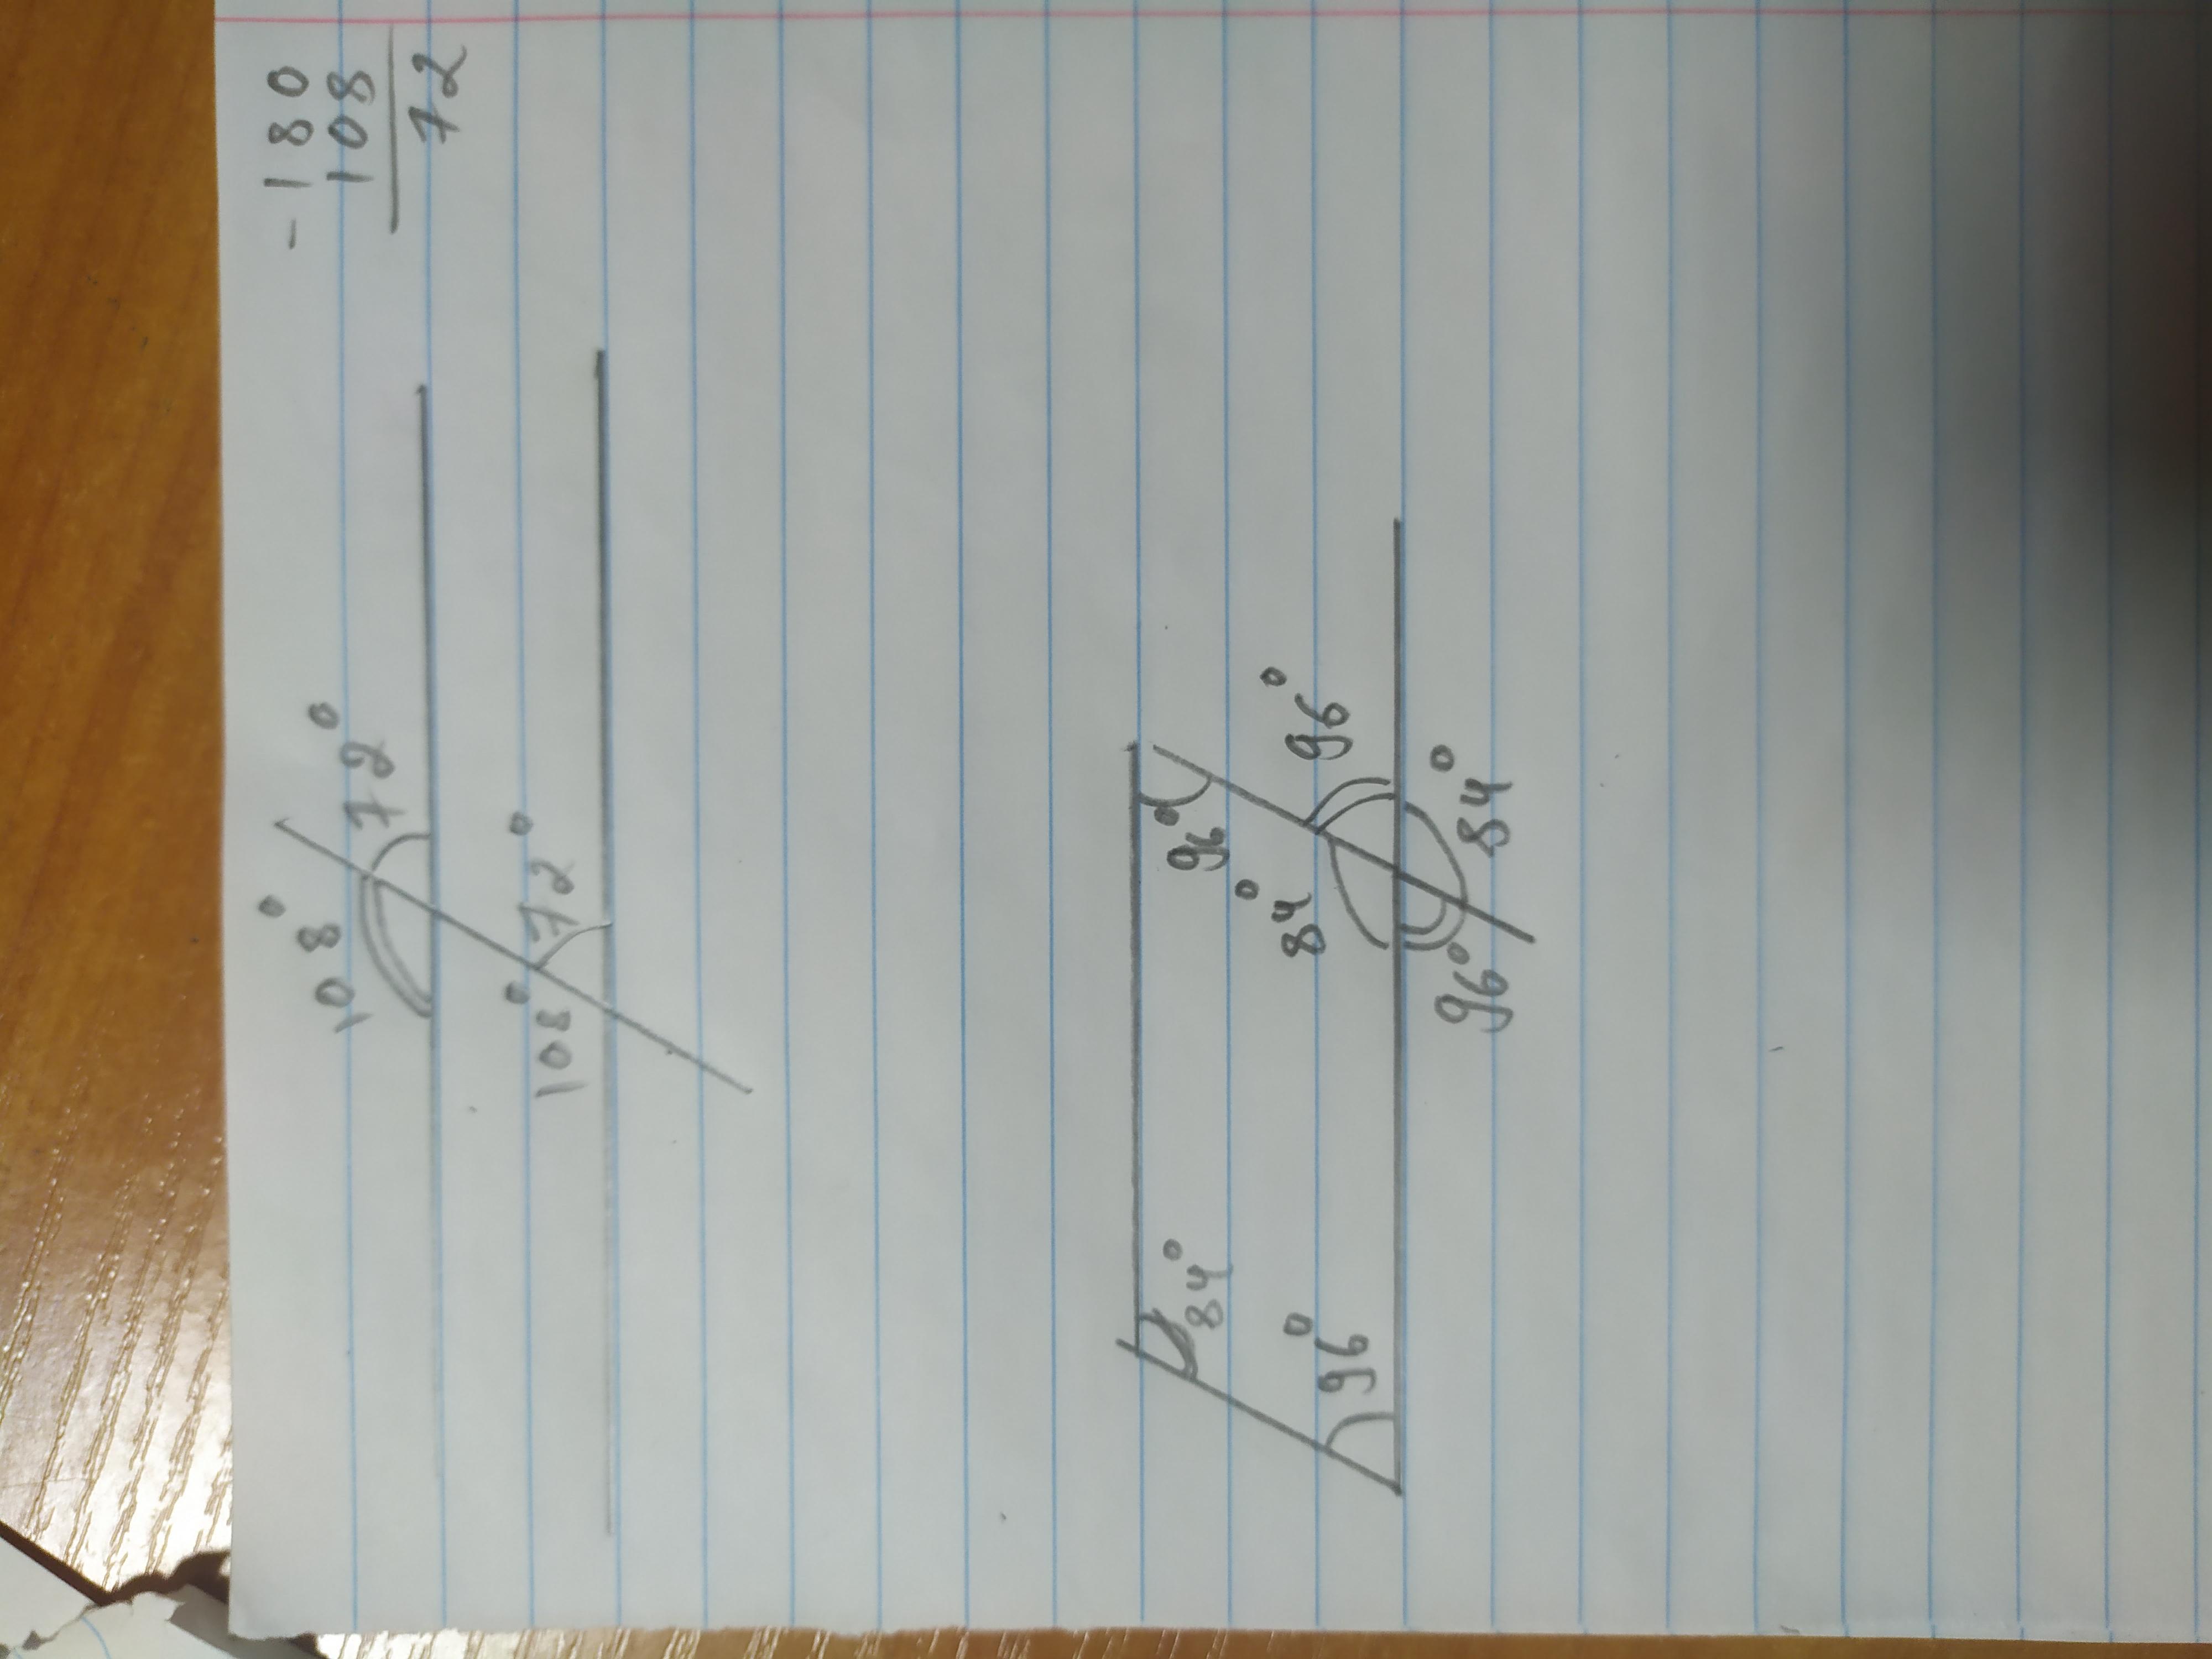 - 180
108
72
108° 72°
108° 72°
84° 96°
96° 84° 96°
96° 84°